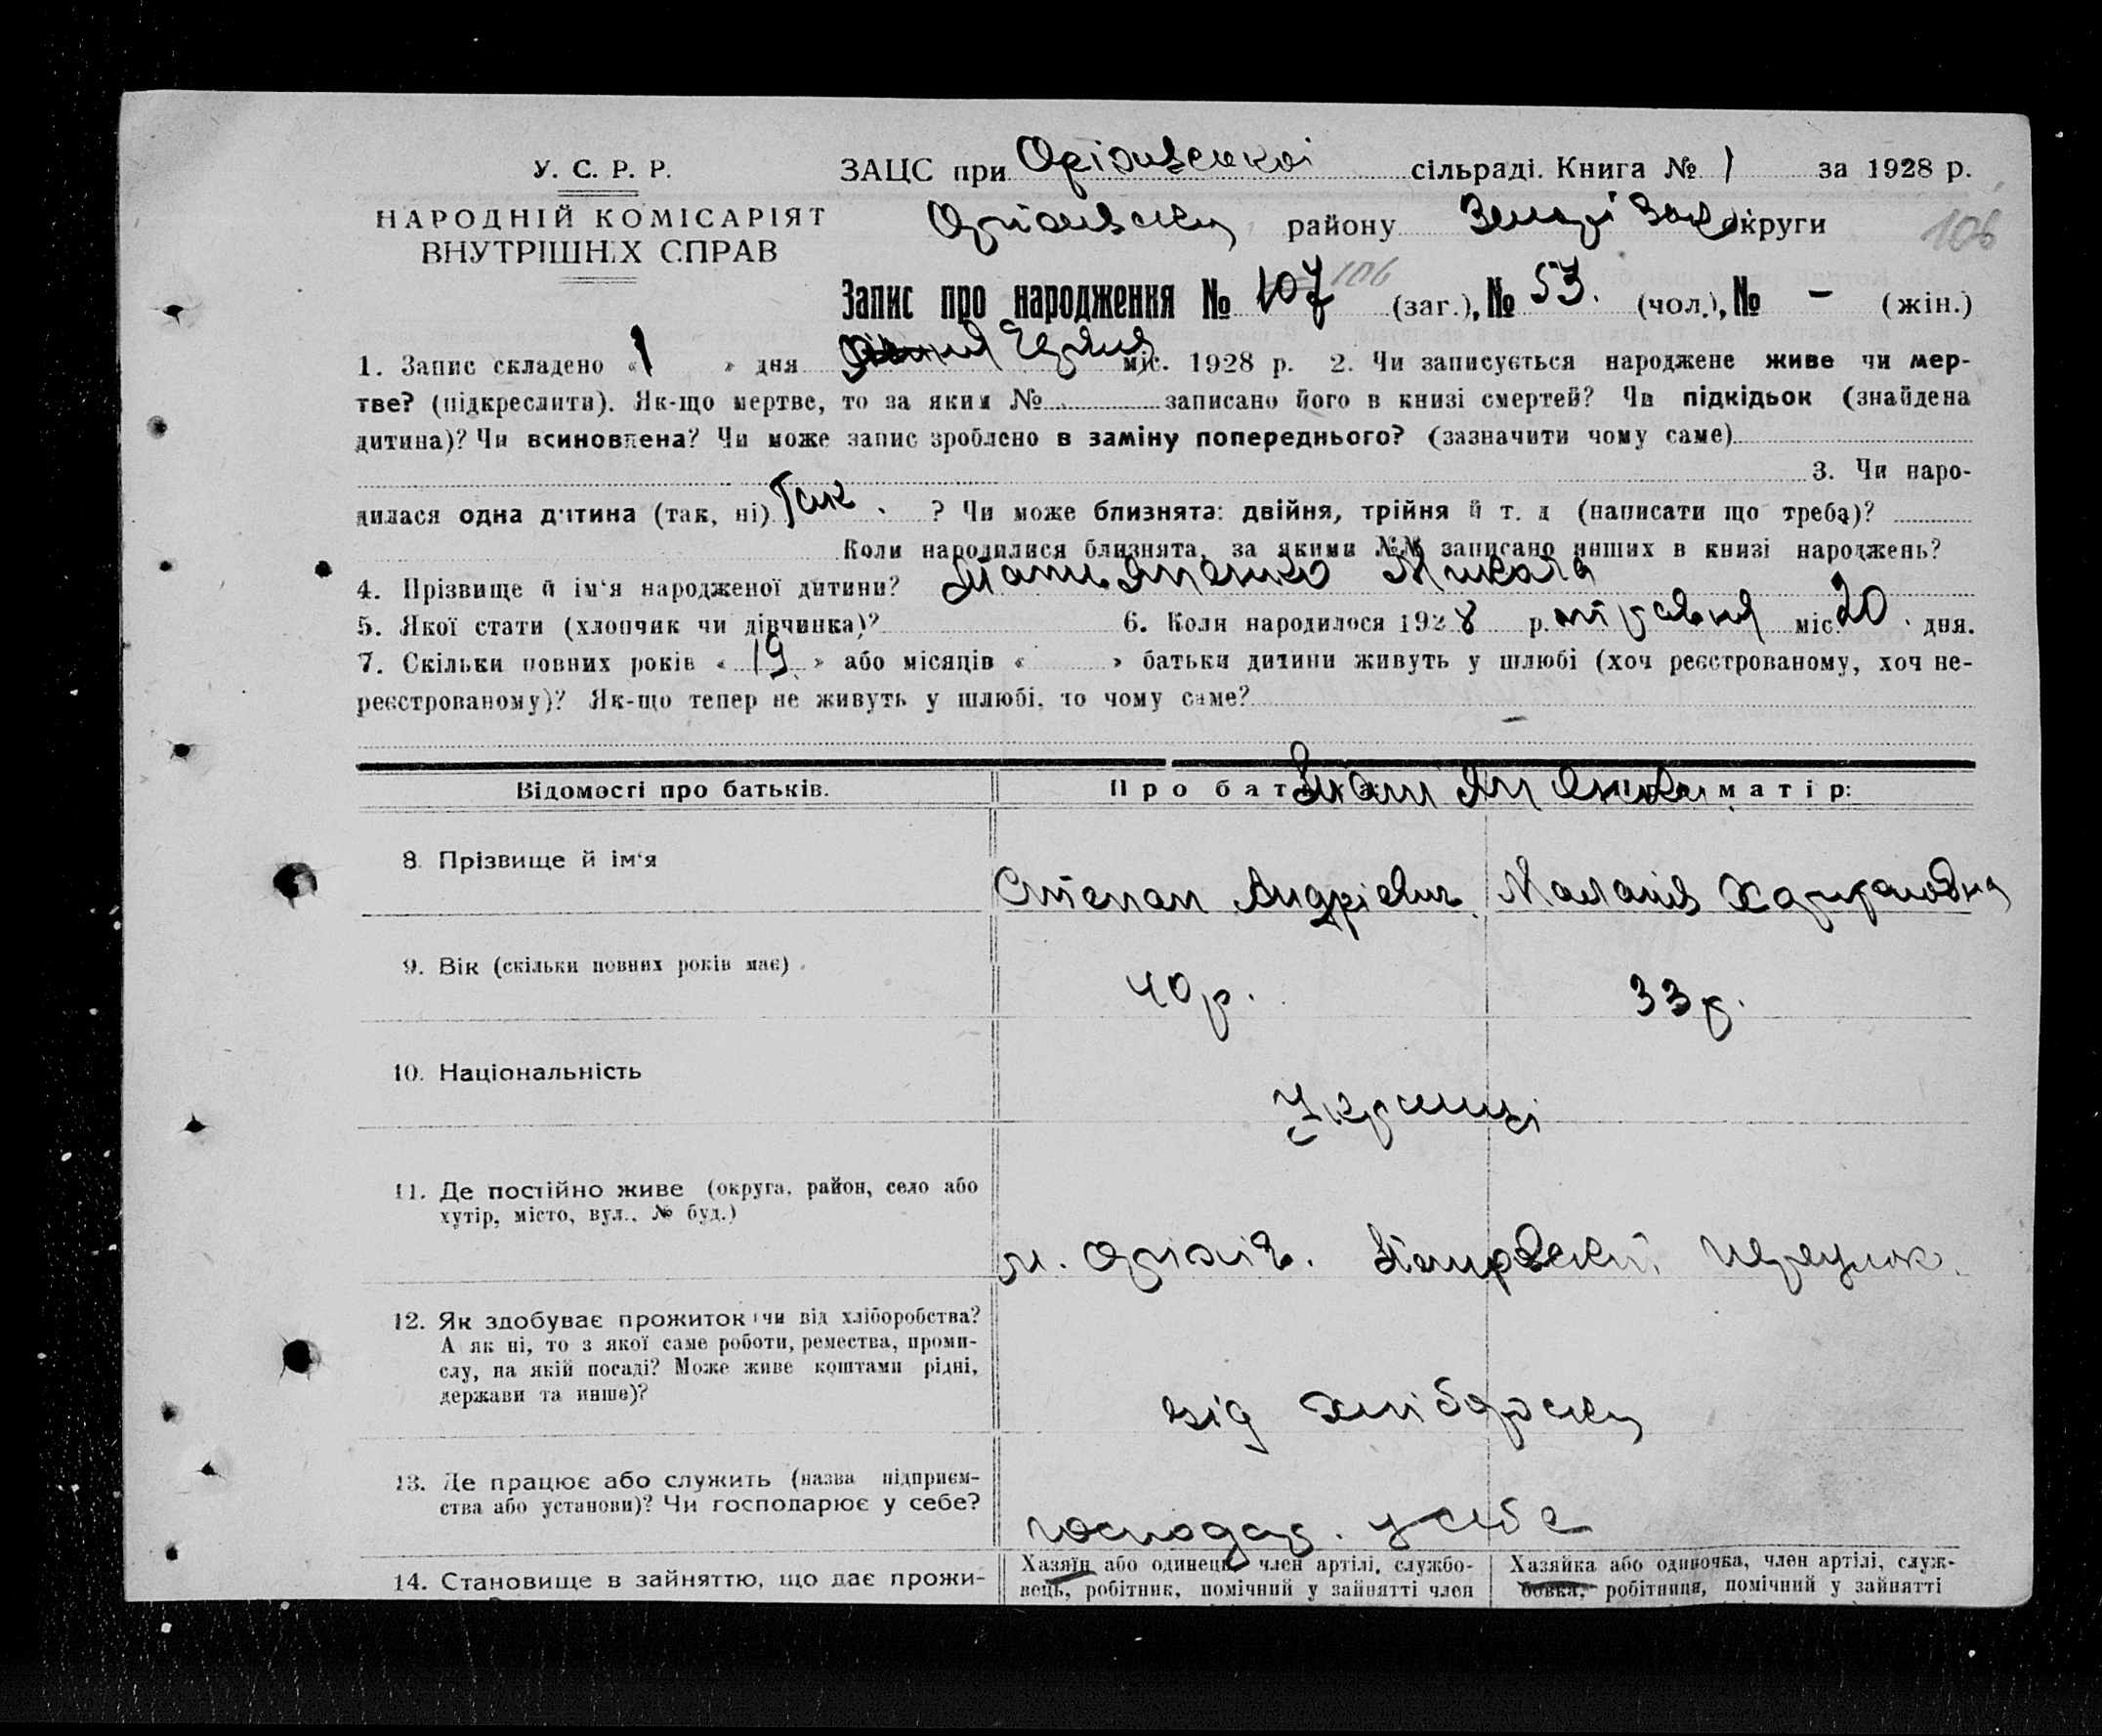 У. С. Р. Р.
НАРОДНІЙ КОМІСАРІЯТ
ВНУТРІШНІХ СПРАВ
ЗАЦС при Оріхівській сільраді. Книга № 1 за 1928 р.
району округи
106
Запис про народження № 107 106 (заг.), № 53. (чол.), № – (жін.)
1. Запис складено « 1 » дня Червня міс. 1928 р. 2. Чи записується народжене живе чи мер-
тве? (підкреслити). Як-що мертве, то за яким № записано його в книзі смертей? Чи підкідьок (знайдена
дитина)? Чи всиновлена? Чи може запис зроблено в заміну попереднього? (зазначити чому саме)
3. Чи наро-
дилася одна дитина (так, ні) Так. ? Чи може близнята: двійня, трійня й т. д (написати що треба)?
Коли народилися близнята, за якими №№ записано инших в книзі народжень?
4. Прізвище й ім'я народженої дитини? Микола
5. Якої стати (хлопчик чи дівчинка)? 6. Коли народилося 1928 р. травня міс. 20. дня.
7. Скільки повних років « 19 » або місяців « » батьки дитини живуть у шлюбі (хоч реєстрованому, хоч не-
реєстрованому)? Як-що тепер не живуть у шлюбі, то чому саме? –
Відомості про батьків.
Про батька: Про матір:
8. Прізвище й ім'я
Степан Андрієвич Маланія
9. Вік (скільки повних років має)
40 р. 33 р.
10. Національність
Українці
11. Де постійно живе (округа, район, село або
хутір, місто, вул., № буд.)
м. Оріхів.
12. Як здобуває прожиток (чи від хліборобства?
А як ні, то з якої саме роботи, ремества, проми-
слу, на якій посаді? Може живе коштами рідні,
держави та инше)?
від
13. Де працює або служить (назва підприєм-
ства або установи)? Чи господарює у себе?
господар. у себе
14. Становище в зайняттю, що дає прожи-
Хазяїн або одинець, член артілі, службо-
вець, робітник, помічний у зайнятті член
Хазяйка або одиночка, член артілі, служ-
бовка, робітниця, помічний у зайнятті